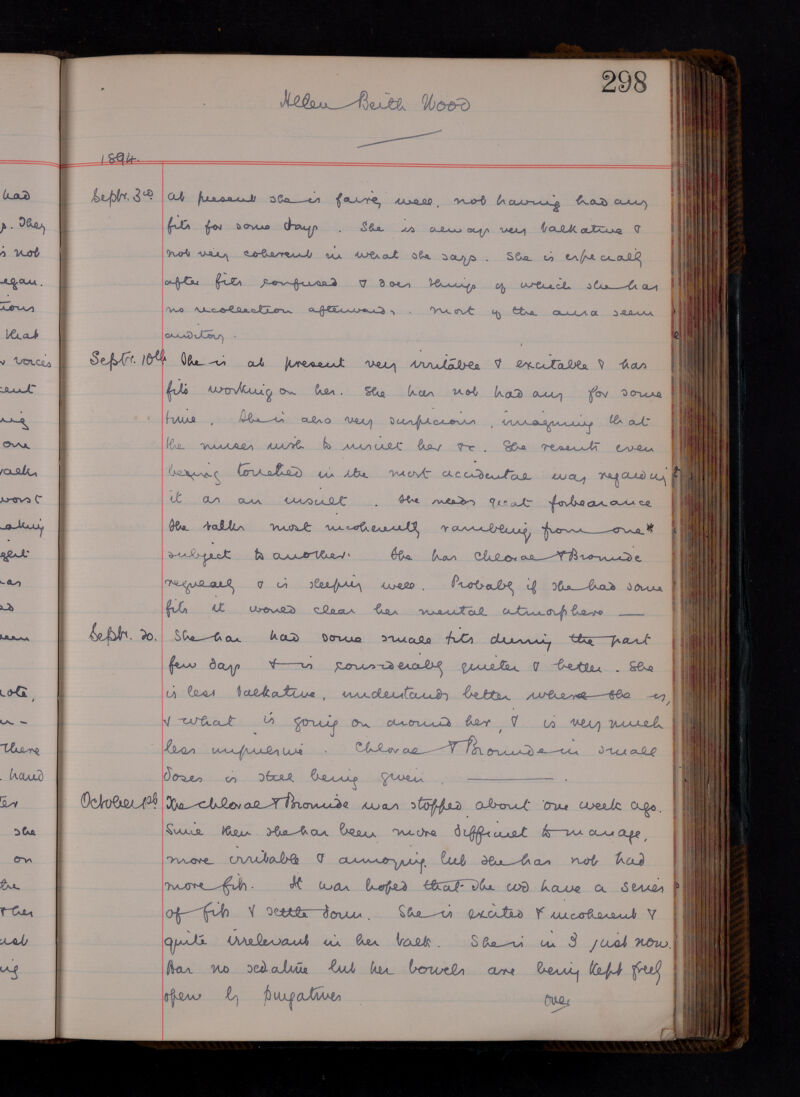 298
Helen Beith Wood
1894.
Septr. 3rd at present she is fairly well, not having had any
fits for some days. She is always very talkative &
not very coherent in what she says. She is especially
after fits confused & does things of which she has
no recollection afterwards. Most of the aura seem
auditory.
Septr. 10th She is at present very irritable & excitable & has
fits working on her. She has not had any for some
time. She is also very suspicious, imagining that
the nurses wish to insult her &c. She resents even
being touched in the most accidental way regarding
it as an insult. She needs great forbearance
She talks most incoherently rambling from one
subject to another. She has Chloral & Bromide
regularly & is sleeping well. Probably if she had some
fits it would clear her mental atmosphere —
Septr. 20. She has had some small fits during the past
few days & is considerably quieter & better. She
is less talkative, understands better where she is,
& what is going on around her, & is very much
less impulsive. Chloral & Bromide in small
doses is still being given. —
October 1st The chloral & Bromide was stopped about one week ago.
Since then she has been more difficult to manage,
more irritable & annoying but she has not had
more fits. It was hoped that she wd have a series
of fits & settle down. She is excited & incoherent &
quite irrelevant in her talk. She is in 3 just now.
Has no sedative but her bowels are being kept freely
open by purgatives
over
had
. They
is not
egan.
that
voices
one
talks
worst
as
note,
there
hand
she
on
the
& her